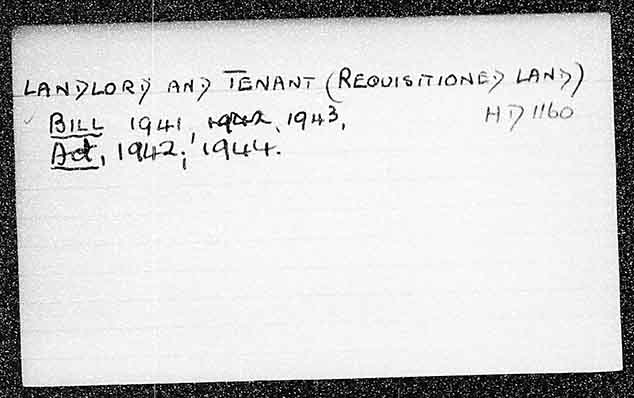 LANDLORD AND TENANT (REQUISITIONED LAND)
BILL 1941, 1942, 1943, HD 1160
Act, 1942; 1944.